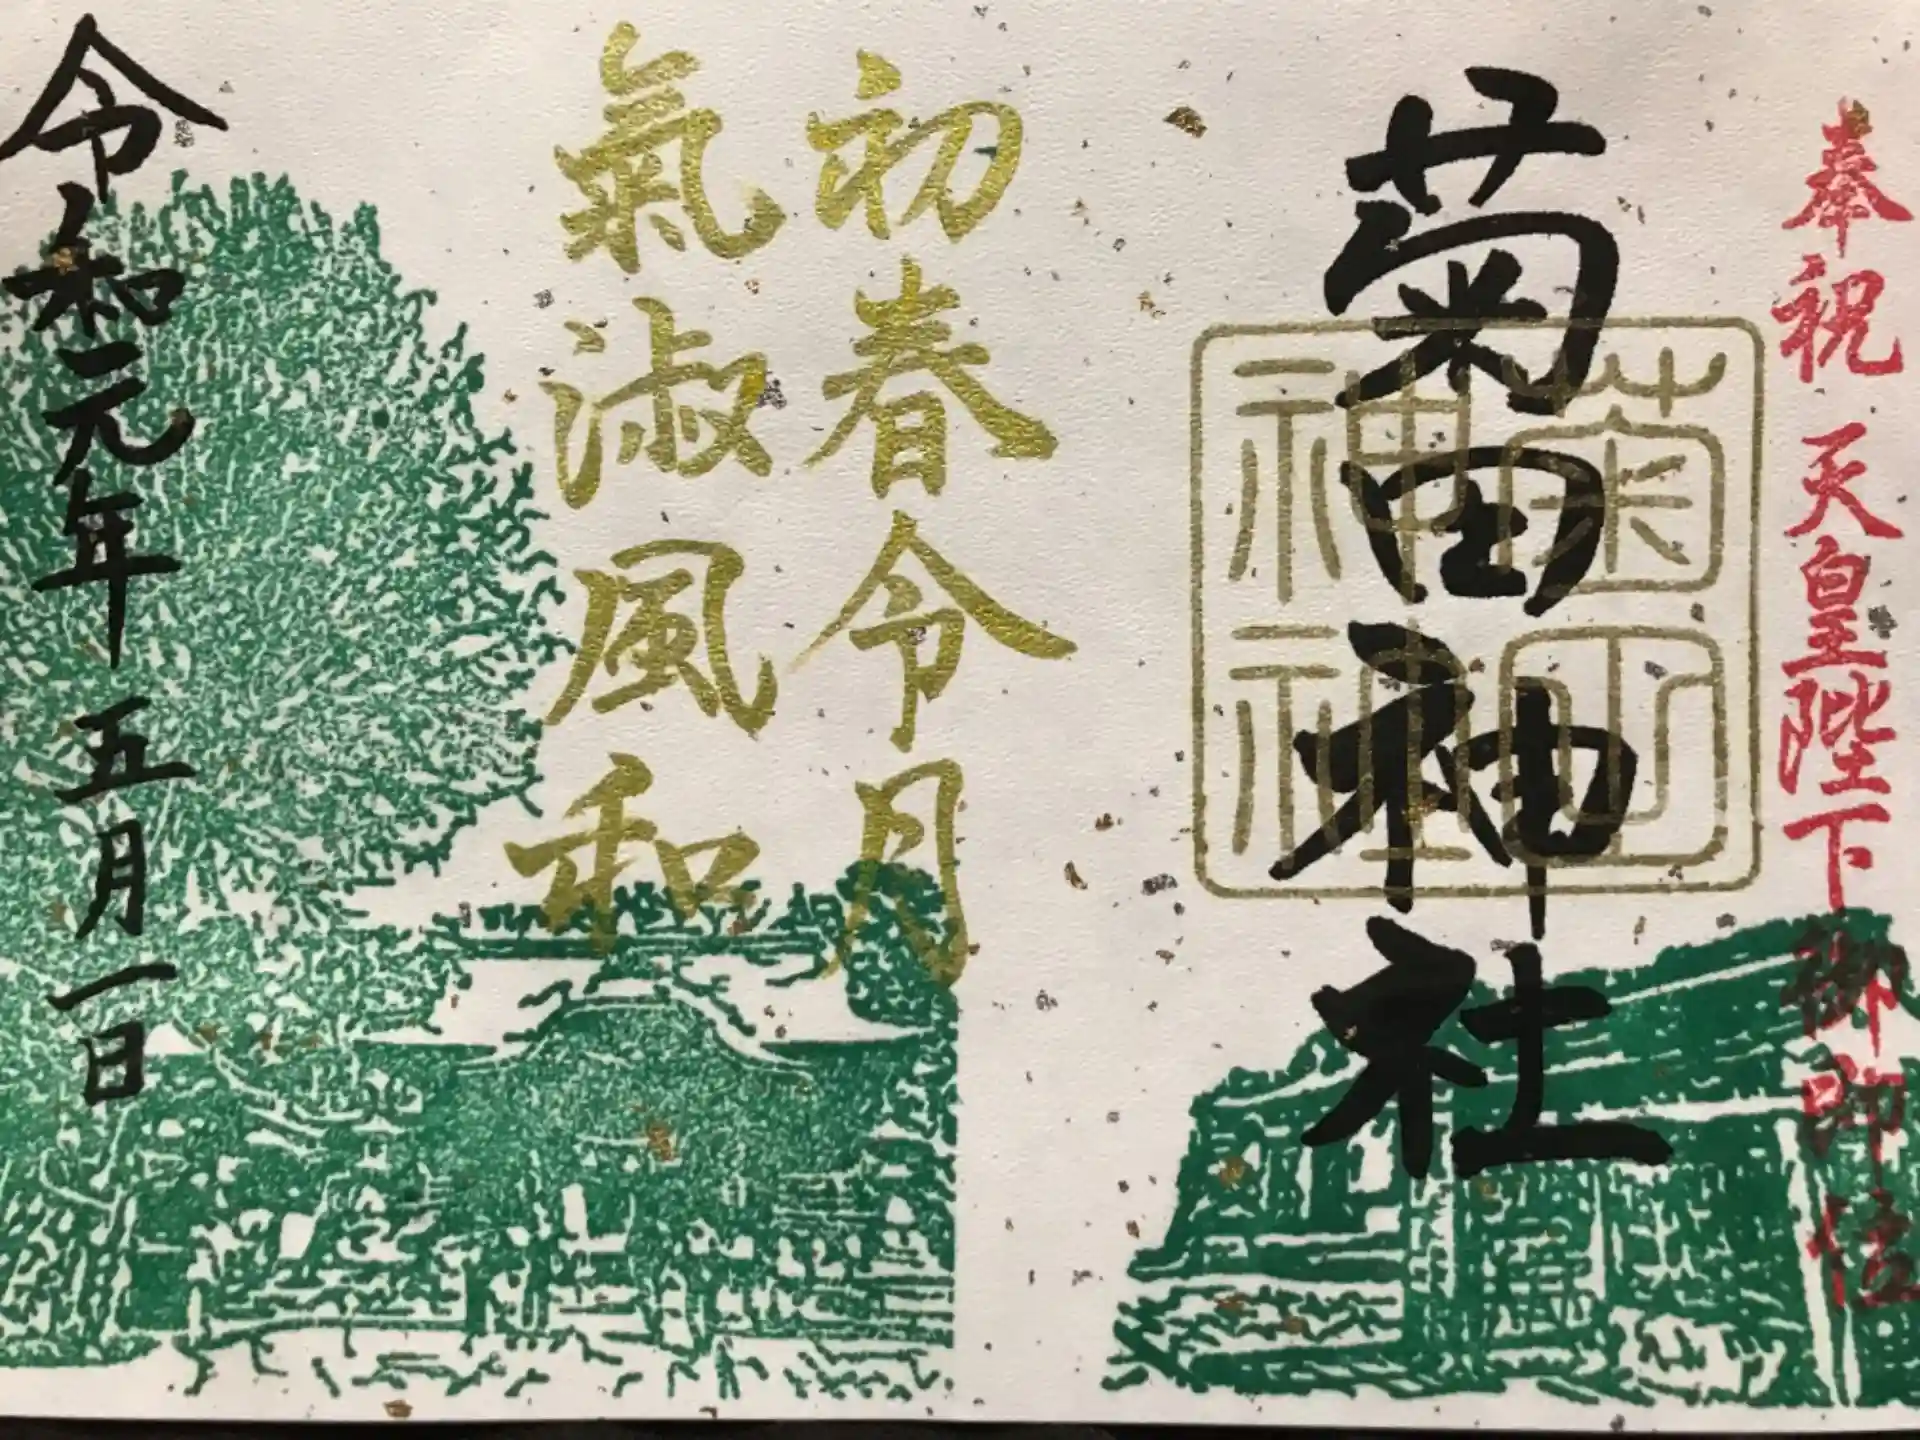 奉祝 天皇陛下御即位
菊田神社
菊田
神社
初春令月
氣淑風和
令和元年 五月一日